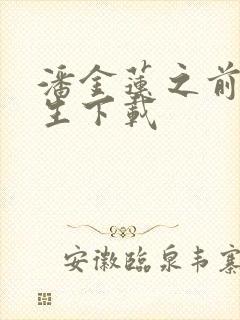 潘金蓮之前
生下載
安徽臨泉韦寨